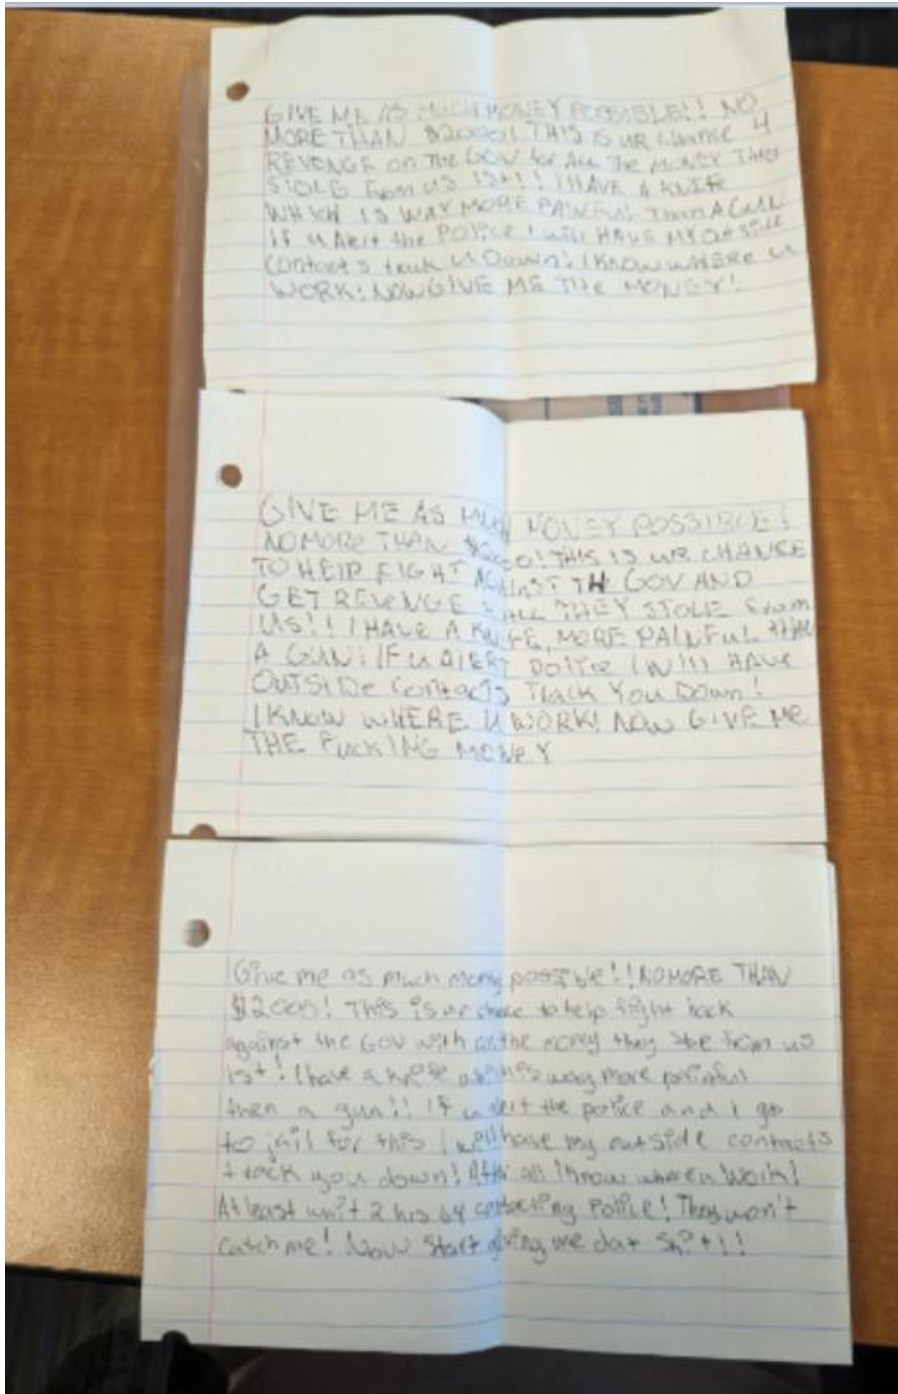 GIVE ME AS MUCH MONEY POSSIBLE!! NO
MORE THAN $2000!! THIS IS UR Chance 4
REVENGE ON The GOV for ALL The MONEY THEY
STOLE From US 1st!! I HAVE A KNIFE
WHICH IS WAY MORE PAINFUL Then A GUN
If u Alert the Police I will HAVE MY OUtSide
Contacts track u Down! I KNOW WHERE u
WORK! NOW GIVE ME THe MONEY!
GIVE ME AS MUCH MONEY POSSIBLE!
NO MORE THAN $2000! THIS IS UR CHANCE
TO HElP FIGHT AGAINST TH GOV AND
GET REVENGE ALL THEY STOLE from
US!! I HAVE A KNIFE, MORE PAINFUL THAN
A GUN! IF u AlERT police I Will HAVE
OUTSIDe Contacts Track You Down!
I KNOW WHERE U WORK! NOW GIVE Me
THE FucKING MONeY
Give me as much money possible!! NO MORE THAN
$2000! This is ur chance to help fight back
against the GOV with all the money they stole from us
1st! I have a knife which is way more painful
then a gun!! If u alert the police and I go
to jail for this I will have my outside contacts
track you down! After all I know where u work!
At least wait 2 hrs b4 contacting Police! They won't
catch me! Now start giving me dat Shit!!